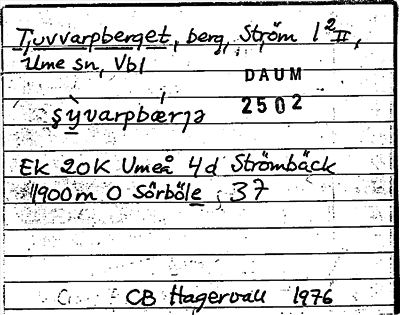 Tjuvvarpberget, berg, Ström 1²II,
Ume sn, Vbl
DAUM
2502
ʂỳvarpbærjə
Ek 20K Umeå 4d Strömbäck
1900 m O Sörböle ; 37
CB Hagervall 1976